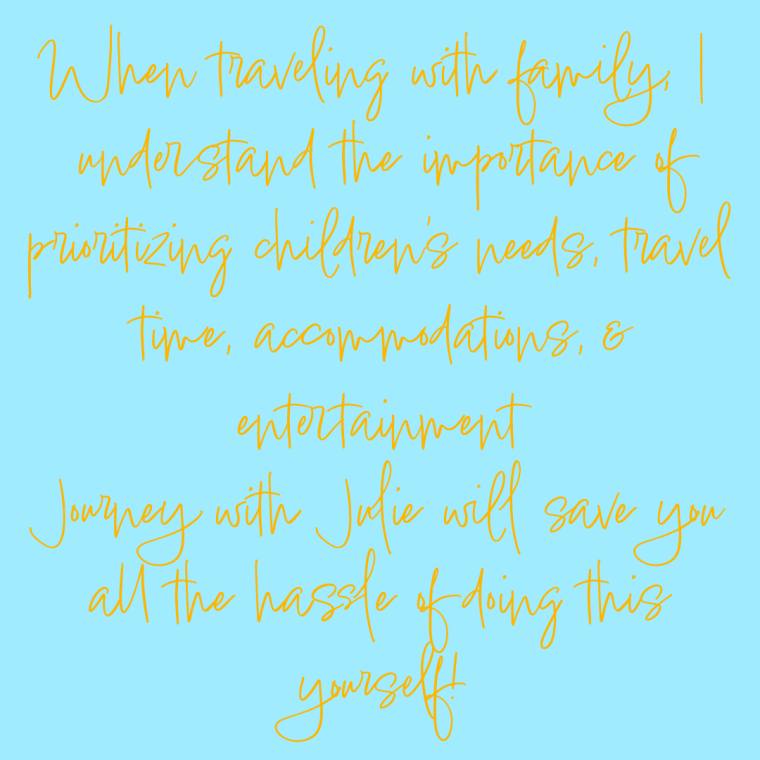 When traveling with family, I
understand the importance of
prioritizing children's needs, travel
time, accommodations, &
entertainment
Journey with Julie will save you
all the hassle of doing this
yourself!